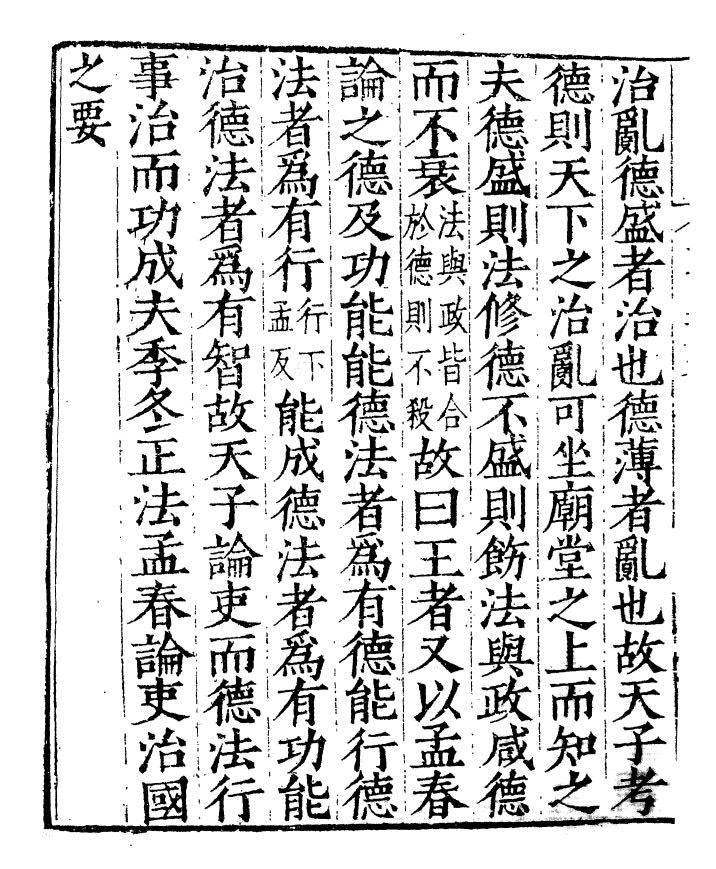 治亂德盛者治也德薄者亂也故天子考
德則天下之治亂可坐廟堂之上而知之
夫德盛則法修德不盛則飭法與政咸德
而不衰法與政皆合於德則不殺故曰王者又以孟春
論之德及功能能德法者爲有德能行德
法者爲有行行下孟反能成德法者爲有功能
治德法者爲有智故天子論吏而德法行
事治而功成夫季冬正法孟春論吏治國
之要